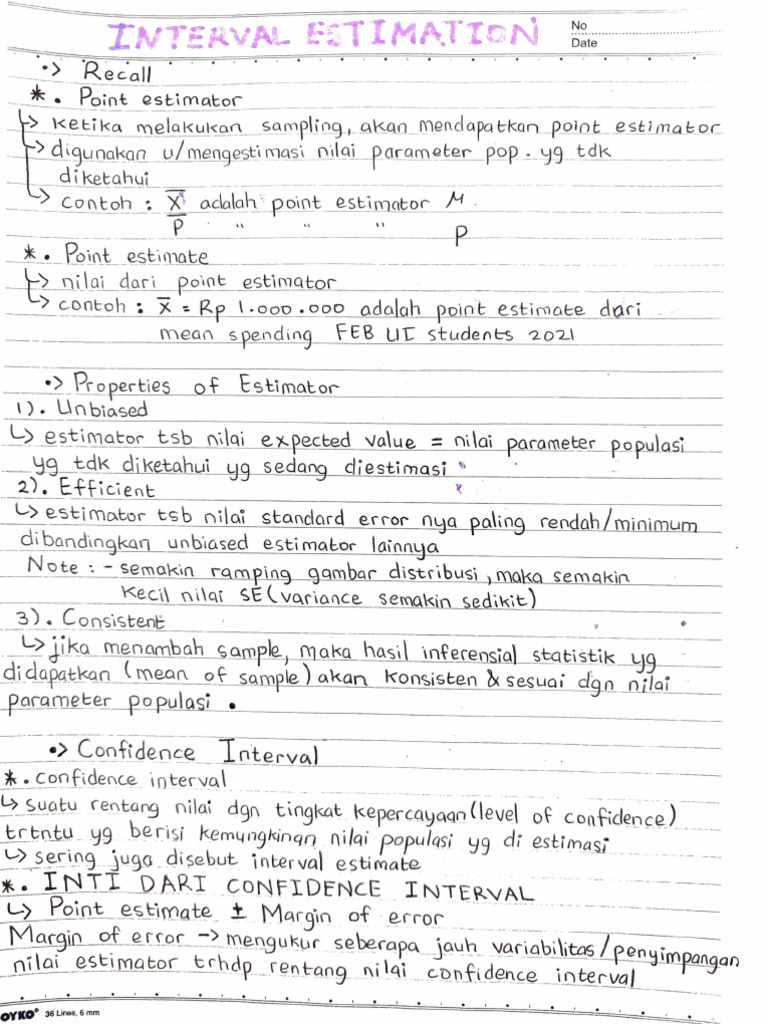 INTERVAL ESTIMATION
No
Date
•> Recall
*. Point estimator
↳> ketika melakukan sampling, akan mendapatkan point estimator
↳> digunakan u/mengestimasi nilai parameter pop. yg tdk
diketahui
↳> contoh : X̅ adalah point estimator M
P̅ " " " P
*. Point estimate
↳> nilai dari point estimator
↳> contoh : x̅ = Rp 1.000.000 adalah point estimate dari
mean spending FEB UI students 2021
•> Properties of Estimator
1). Unbiased
↳ estimator tsb nilai expected value = nilai parameter populasi
yg tdk diketahui yg sedang diestimasi
2). Efficient
↳ estimator tsb nilai standard error nya paling rendah/minimum
dibandingkan unbiased estimator lainnya
Note : - semakin ramping gambar distribusi, maka semakin
kecil nilai SE (variance semakin sedikit)
3). Consistent
↳ jika menambah sample, maka hasil inferensial statistik yg
didapatkan (mean of sample) akan konsisten & sesuai dgn nilai
parameter populasi.
•> Confidence Interval
*. confidence interval
↳ suatu rentang nilai dgn tingkat kepercayaan (level of confidence)
trtntu yg berisi kemungkinan nilai populasi yg di estimasi
↳ sering juga disebut interval estimate
*. INTI DARI CONFIDENCE INTERVAL
↳ Point estimate ± Margin of error
Margin of error -> mengukur seberapa jauh variabilitas/penyimpangan
nilai estimator trhdp rentang nilai confidence interval
OYKO® 36 Lines, 6 mm